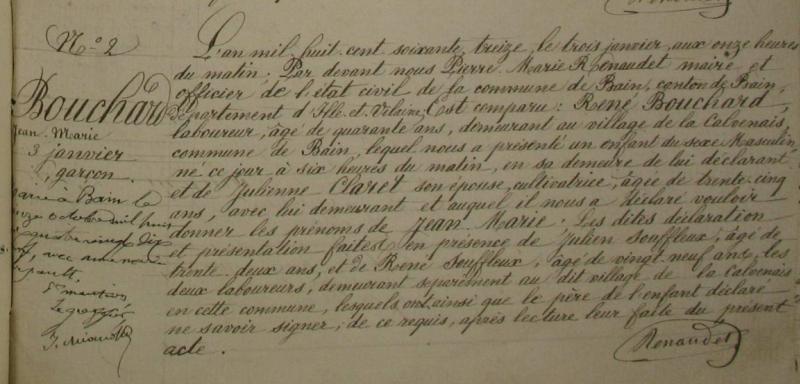 N.o 2
Bouchard
Jean Marie
3 janvier
garçon.
marié à Bain le
octobre mil huit
quatre vingt dix
, avec
L'an mil huit cent soixante treize, le trois janvier, aux onze heures
du matin, Par devant nous Pierre Marie Renaudet maire et
officier de l'état civil de la commune de Bain, canton de Bain,
département d'Ille et Vilaine, Est comparu: René Bouchard,
laboureur, âgé de quarante ans, demeurant au village de la Calvenais,
commune de Bain, lequel nous a présenté un enfant du sexe Masculin,
né ce jour à six heures du matin, en sa demeure de lui déclarant
et de Julienne Claret son épouse, cultivatrice, âgée de trente cinq
ans, avec lui demeurant et auquel il nous a déclaré vouloir
donner les prénoms de Jean Marie. Les dites déclaration
et présentation faites en présence de Julien Souffleux, âgé de
trente deux ans, et de René Souffleux, âgé de vingt neuf ans, les
deux laboureurs, demeurant séparément au dit village de la Calvenais
en cette commune, lesquels ont ainsi que le père de l'enfant déclaré
ne savoir signer, de ce requis, après lecture leur faite du présent
acte.
Renaudet